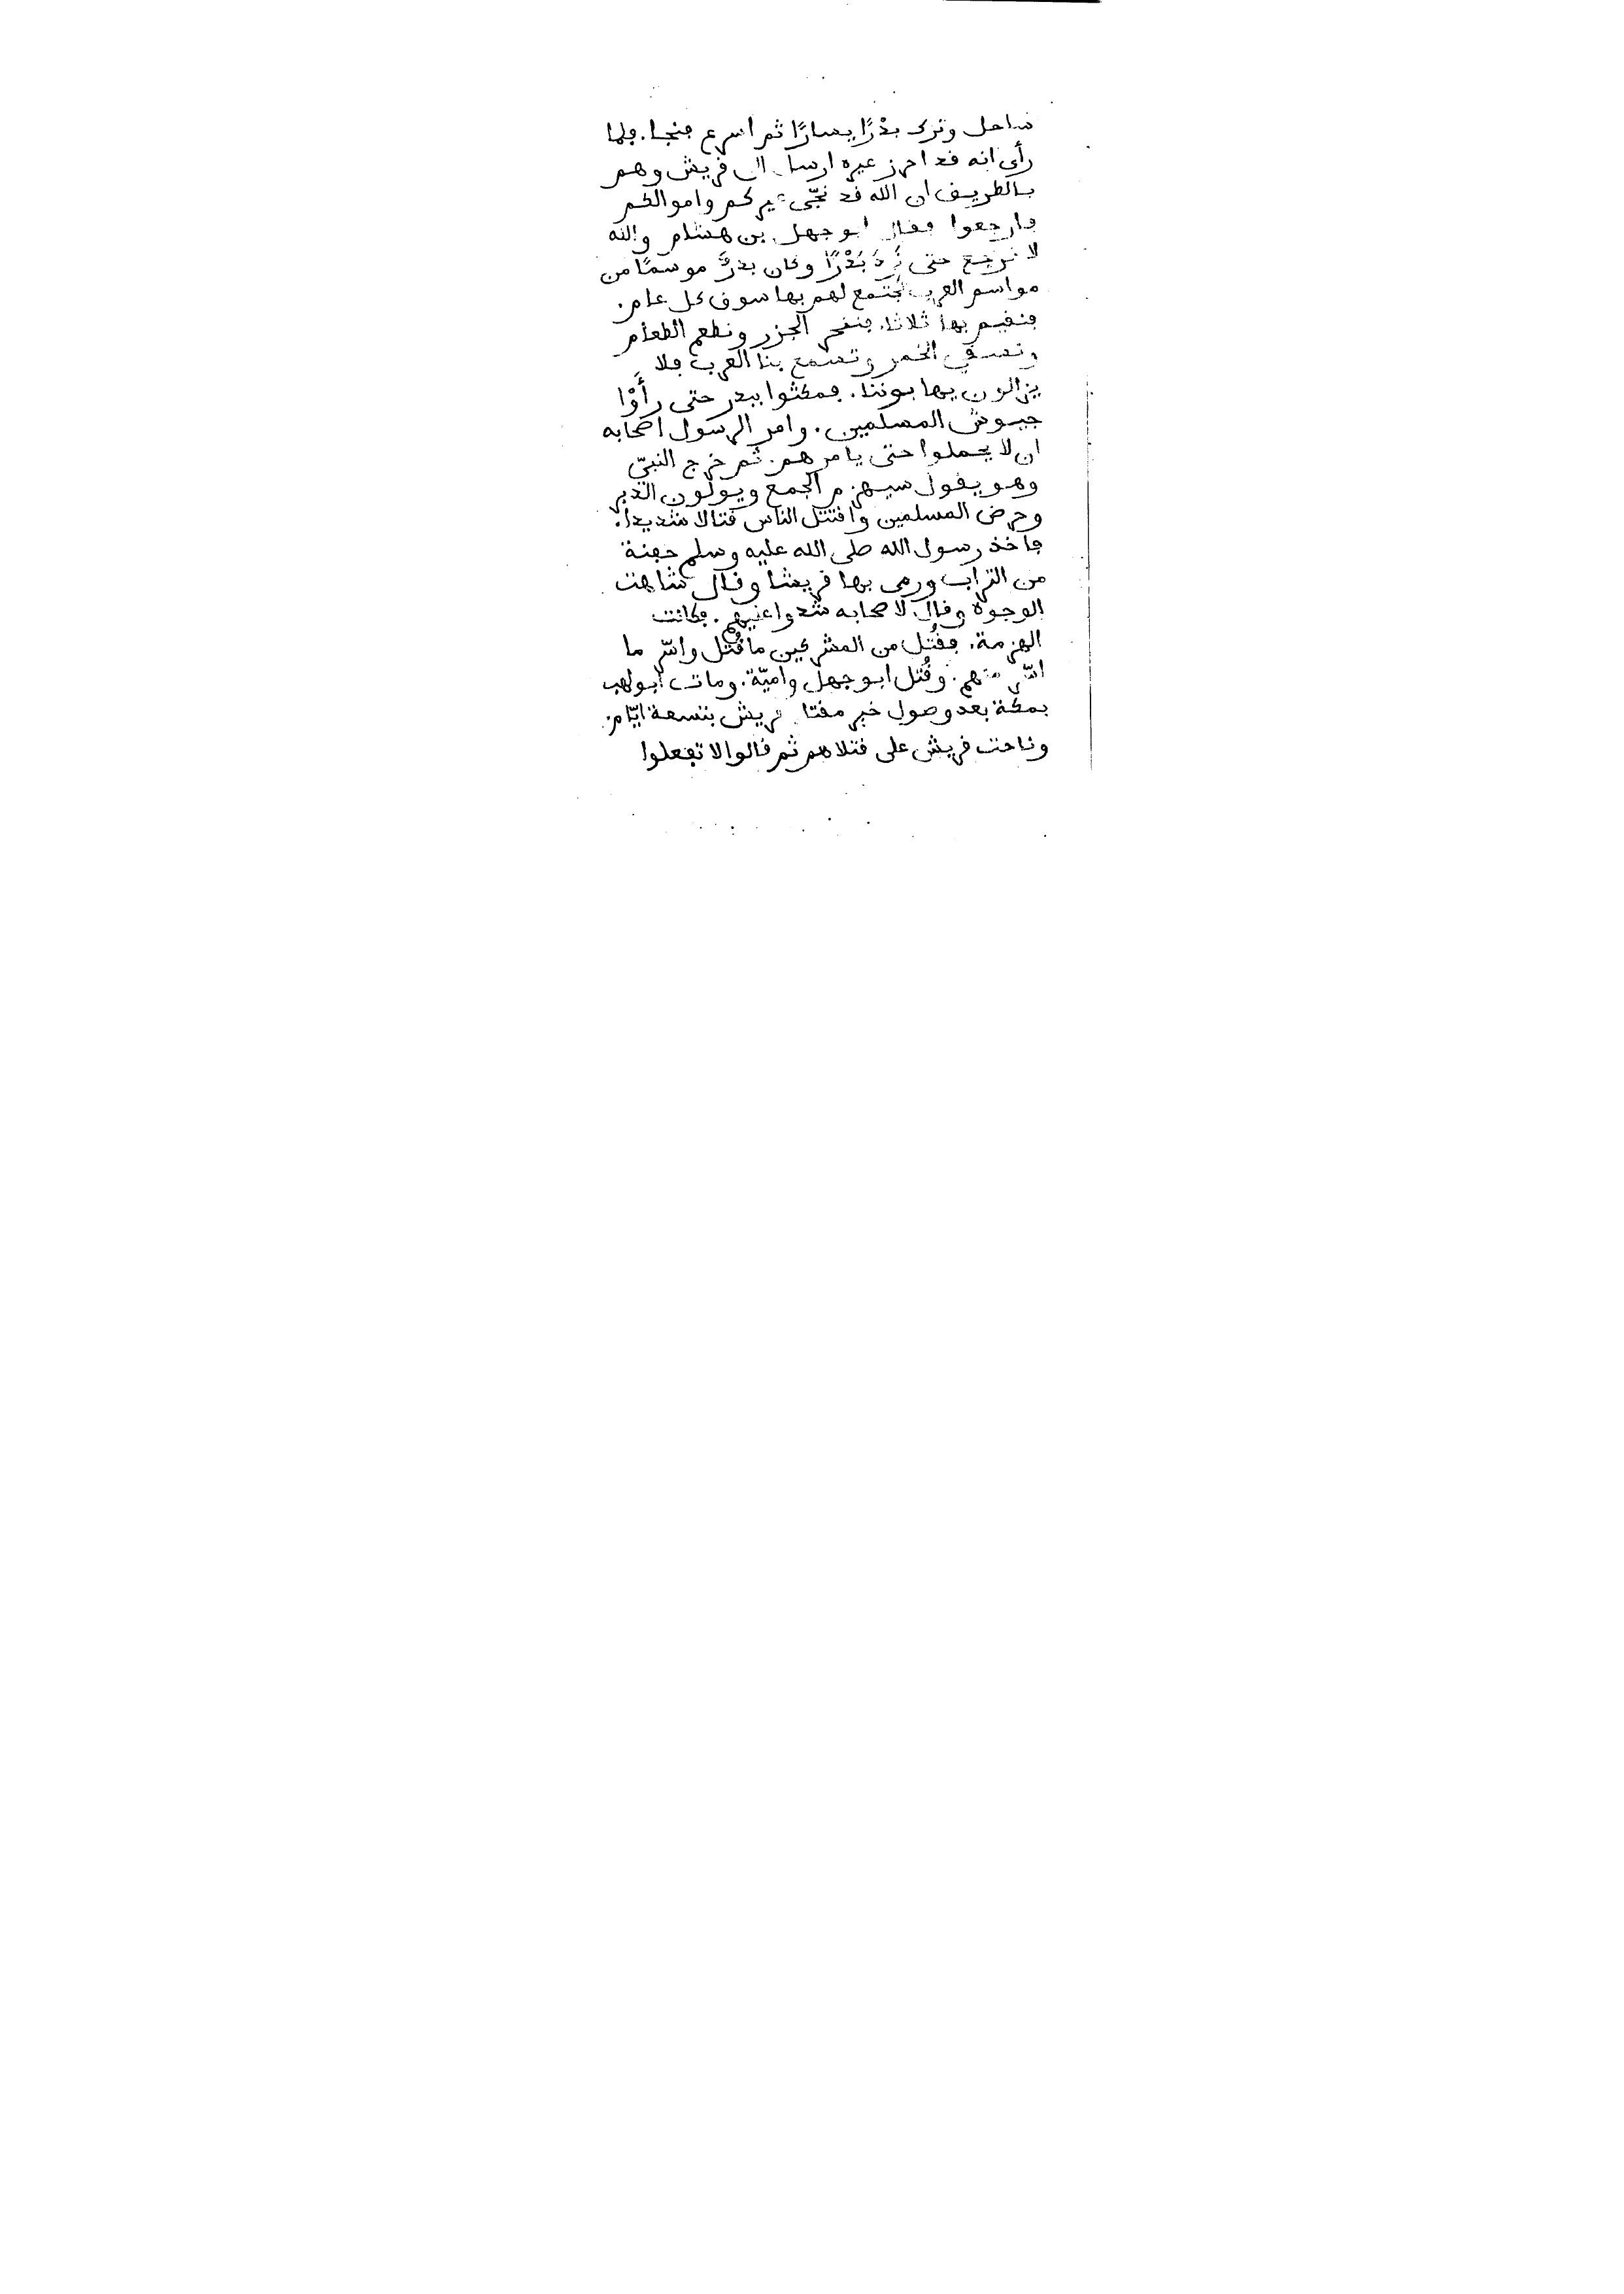 ساحل وترك بدْرًا يسارًا ثم اسرع فنجا. فلما
رأى انه قد احرز عيره ارسل الى قريش وهم
بالطريق ان الله قد نجّى عيركم واموالكم
فارجعوا فقال ابو جهل بن هشام والله
لا نرجع حتى نَرِدَ بَدْرًا وكان بدرٌ موسمًا من
مواسم العرب تجتمع لهم بها سوق كل عام.
فنقيم بها ثلاثا. فننحر الجزر ونطعم الطعام
ونسقي الخمر وتسمع بنا العرب فلا
يزالون يهابوننا. فمكثوا ببدر حتى رأَوْا
جيوش المسلمين. وامر الرسول اصحابه
ان لا يحملوا حتى يامرهم. ثم خرج النبيّ
وهو يقول سيهزم الجمع ويولّون الدبر
وحرض المسلمين واقتتل الناس قتالا شديدا.
فاخذ رسول الله صلى الله عليه وسلم حفنة
من التراب ورمى بها قريشا وقال شاهت
الوجوه وقال لاصحابه شدوا عليهم. فكانت
الهزمة. فقُتل من المشركين ما قُتل واسّر ما
اسّر منهم. وقُتل ابو جهل واميّة. ومات ابو لهب
بمكة بعد وصول خبر مقتل قريش بتسعة ايّام.
وناحت قريش على قتلاهم ثم قالوا لا تفعلوا